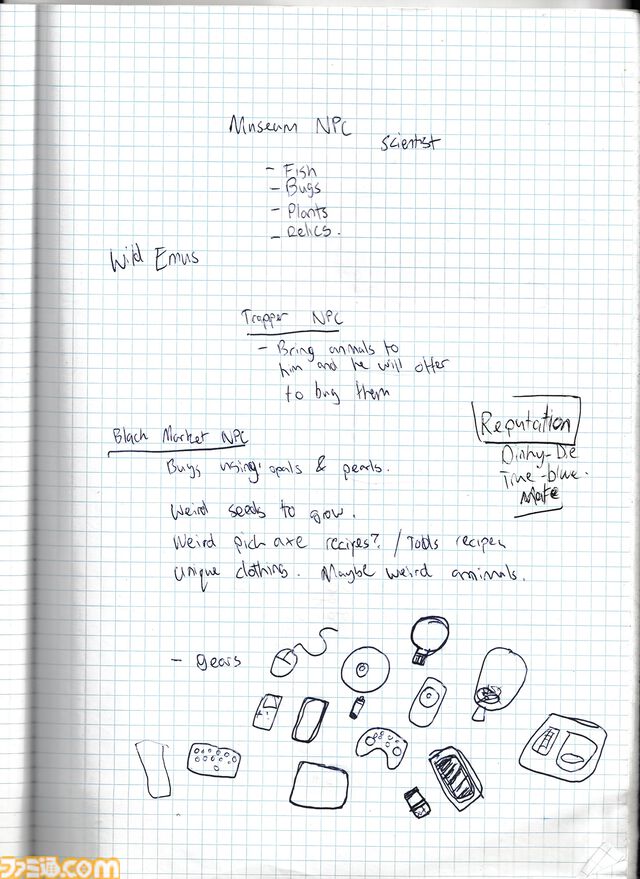 Museum NPC
scientist
- Fish
- Bugs
- Plants
- Relics.
Wild Emus
Trapper NPC
- Bring animals to
him and he will offer
to buy them
Reputation
Dinky-Die
True-blue.
Mate
Black Market NPC
Buys using opals & pearls.
Weird seeds to grow.
Weird pick axe recipes? / Tools recipes
unique clothing. Maybe weird animals.
- gears
ファミ通.com